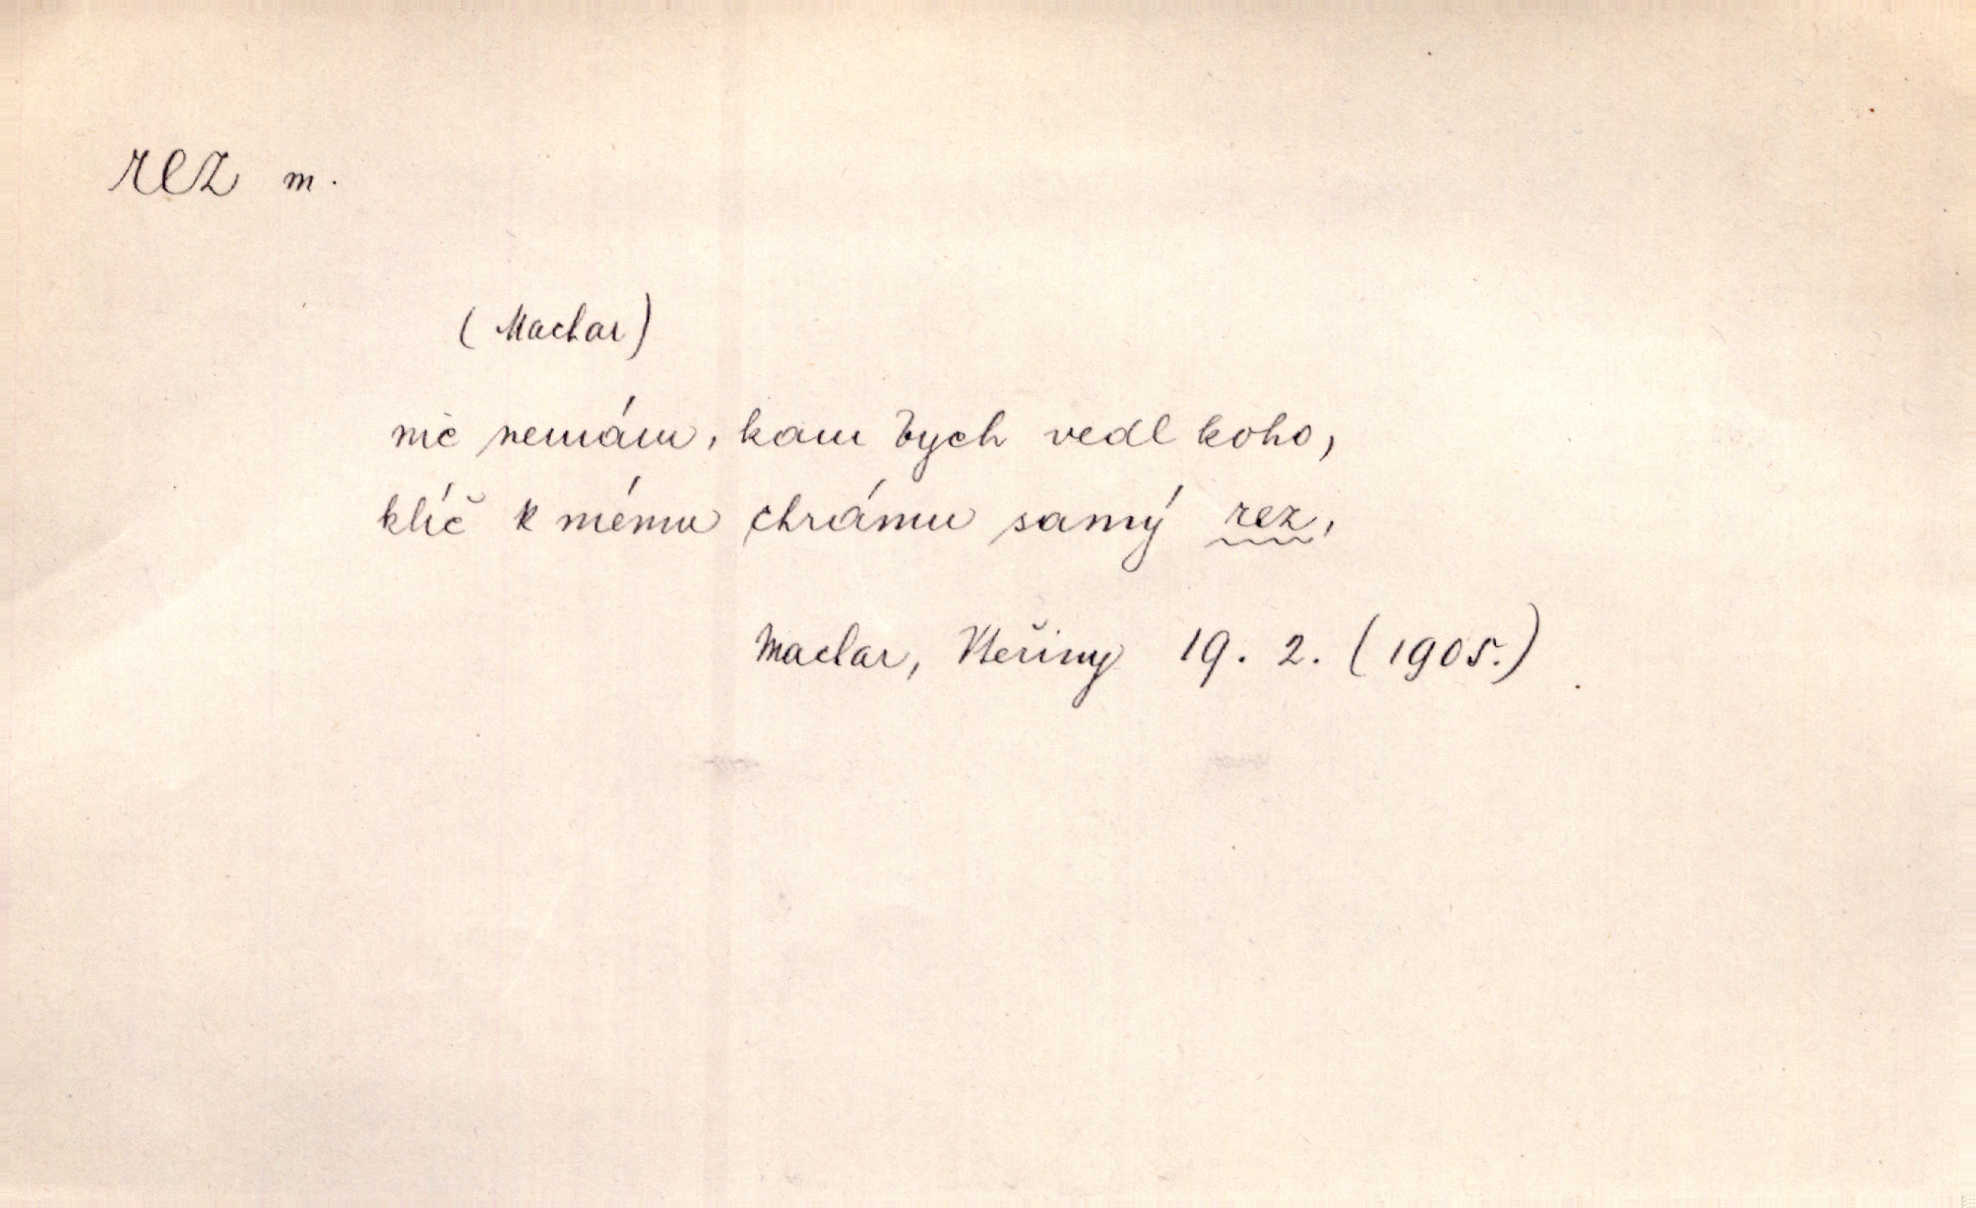 rez m.
(Machar)
nic nemám, kam bych vedl koho,
klíč k mému chrámu samý rez,
Machar, Vteřiny 19. 2. (1905.)